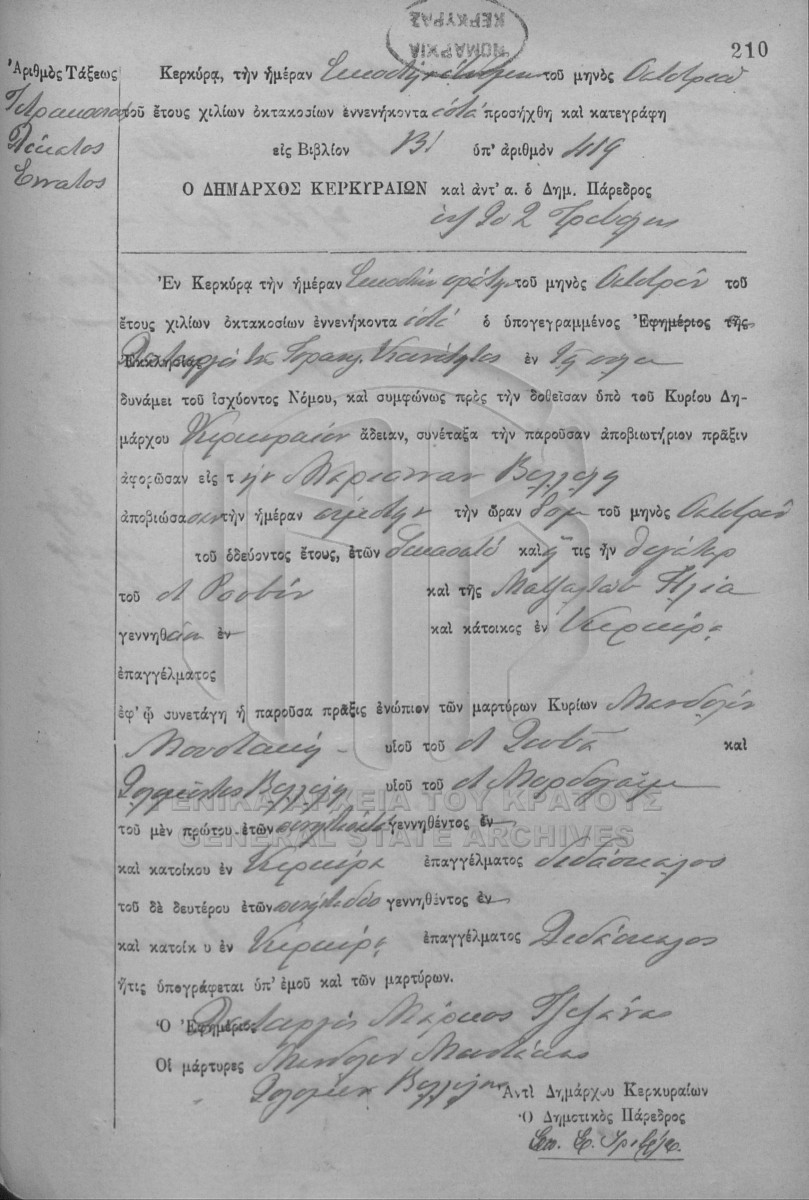 ΝΟΜΑΡΧΙΑ
ΚΕΡΚΥΡΑΣ
210
Ἀριθμὸς Τάξεως
Τετρακοσιοστὸς
Δέκατος
Ἔννατος
Κερκύρᾳ, τὴν ἡμέραν Εἰκοστὴν τοῦ μηνὸς Ὀκτωβρίου
τοῦ ἔτους χιλίων ὀκτακοσίων ἐννενήκοντα ἑπτά προσήχθη καὶ κατεγράφη
εἰς Βιβλίον Β' ὑπ' ἀριθμὸν 419
Ο ΔΗΜΑΡΧΟΣ ΚΕΡΚΥΡΑΙΩΝ καὶ ἀντ' α. ὁ Δημ. Πάρεδρος
Ἐν Κερκύρᾳ τὴν ἡμέραν Εἰκοστὴν πρώτην τοῦ μηνὸς Ὀκτωβρίου τοῦ
ἔτους χιλίων ὀκτακοσίων ἐννενήκοντα ἑπτά ὁ ὑπογεγραμμένος Ἐφημέριος τῆς
Ἐκκλησίας Ἰσραηλ. Κοινότητος ἐν τῇ πόλει
δυνάμει τοῦ ἰσχύοντος Νόμου, καὶ συμφώνως πρὸς τὴν δοθεῖσαν ὑπὸ τοῦ Κυρίου Δη-
μάρχου Κερκυραίων ἄδειαν, συνέταξα τὴν παροῦσαν ἀποβιωτήριον πρᾶξιν
ἀφορῶσαν εἰς τὴν Μάριανναν Βελλέλη
ἀποβιώσασαν τὴν ἡμέραν πέμπτην τὴν ὥραν τοῦ μηνὸς Ὀκτωβρίου
τοῦ ὁδεύοντος ἔτους, ἐτῶν καὶ ἥ τις ἦν θυγάτηρ
τοῦ Ρουβὶν καὶ τῆς Μαζαλτὼβ Ἠλία
γεννηθ ἐν καὶ κάτοικος ἐν Κερκύρᾳ
ἐπαγγέλματος
ἐφ' ᾧ συνετάγη ἡ παροῦσα πρᾶξις ἐνώπιον τῶν μαρτύρων Κυρίων Μανδολίν
Μουστάκη υἱοῦ τοῦ καὶ
Σολομῶντος Βελλέλη υἱοῦ τοῦ Μαρδοχαῒμ
τοῦ μὲν πρώτου ἐτῶν γεννηθέντος ἐν
καὶ κατοίκου ἐν Κερκύρᾳ ἐπαγγέλματος διδάσκαλος
τοῦ δὲ δευτέρου ἐτῶν γεννηθέντος ἐν
καὶ κατοίκ υ ἐν Κερκύρᾳ ἐπαγγέλματος Διδάσκαλος
ἥτις ὑπογράφεται ὑπ' ἐμοῦ καὶ τῶν μαρτύρων.
Ὁ Ἐφημέριος Μάρκος
Οἱ μάρτυρες Μανδολίν Μουστάκης
Σολομὼν Βελλέλης
Ἀντὶ Δημάρχου Κερκυραίων
Ὁ Δημοτικὸς Πάρεδρος
ΓΕΝΙΚΑ ΑΡΧΕΙΑ ΤΟΥ ΚΡΑΤΟΥΣ
GENERAL STATE ARCHIVES